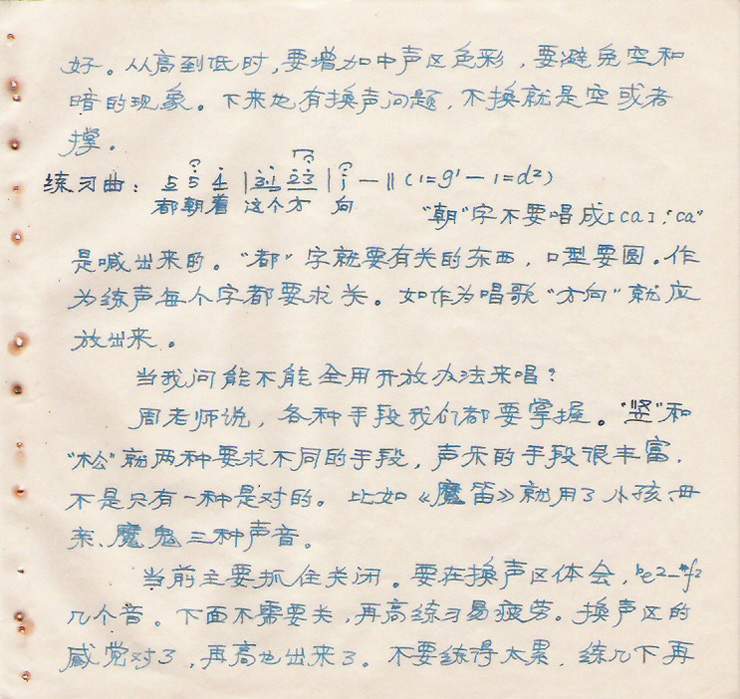 好。从高到低时,要增加中声区色彩,要避免空和
暗的现象。下来也有换声问题,不换就是空或者
撑。
练习曲: 5 5 4 | 3·1 2 3 | 1 — ‖ (1=g¹ — 1=d²)
都朝着 这个方 向
"朝"字不要唱成[ca],"ca"
是喊出来的。"都"字就要有关的东西,口型要圆。作
为练声每个字都要求关。如作为唱歌"方向"就应
放出来。
当我问能不能全用开放办法来唱?
周老师说,各种手段我们都要掌握。"竖"和
"松"就两种要求不同的手段,声乐的手段很丰富,
不是只有一种是对的。比如《魔笛》就用了小孩、母
亲、魔鬼三种声音。
当前主要抓住关闭。要在换声区体会,ᵇe²—#f²
几个音。下面不需要关,再高练习易疲劳。换声区的
感觉对了,再高也出来了。不要练得太累,练几下再